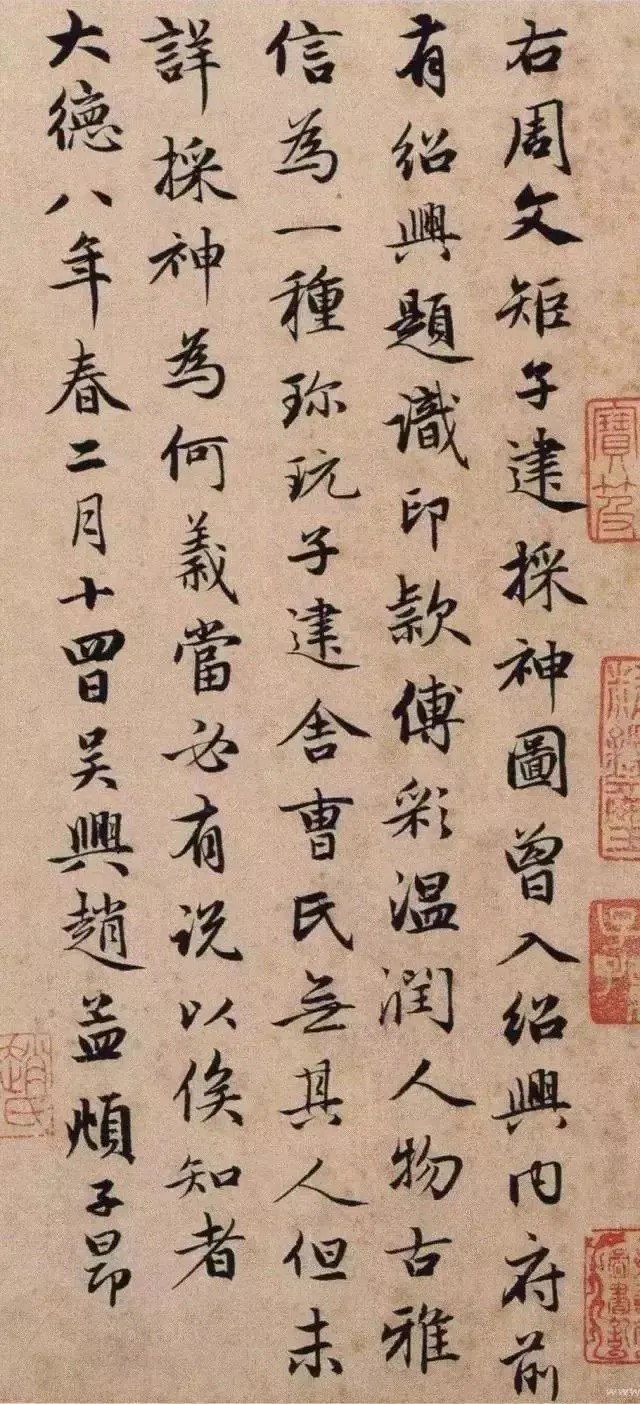 右周文矩子建採神圖曾入紹興内府前
有紹興題識印款傅彩温潤人物古雅
信為一種珎玩子建舍曹氏無其人但未
詳採神為何義當必有説以俟知者
大德八年春二月十四日吴興趙孟頫子昂
寶笈
趙氏
www